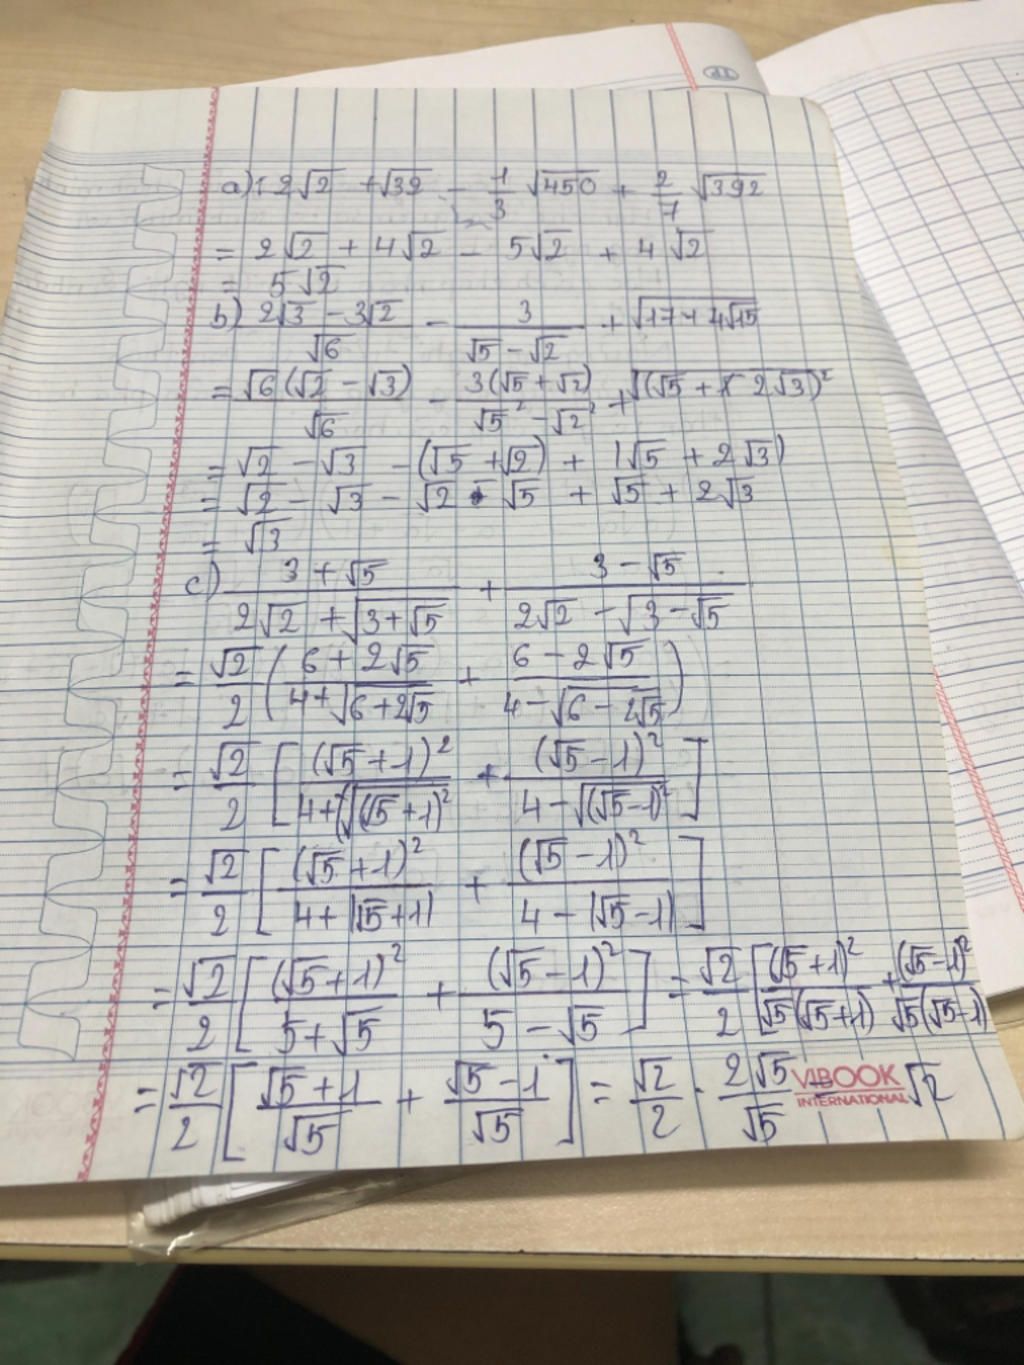 a) 2√2 + √32 - 1/3 √450 + 2/7 √392
= 2√2 + 4√2 - 5√2 + 4√2
= 5√2
b) (2√3 - 3√2)/√6 - 3/(√5 - √2) + √(17 + 4√15)
= √6(√2 - √3)/√6 - 3(√5 + √2)/(√5² - √2²) + √(√5 + 2√3)²
= √2 - √3 - (√5 + √2) + |√5 + 2√3)
= √2 - √3 - √2 - √5 + √5 + 2√3
= √3
c) (3 + √5)/(2√2 + √(3 + √5)) + (3 - √5)/(2√2 - √(3 - √5))
= √2/2 ((6 + 2√5)/(4 + √(6 + 2√5)) + (6 - 2√5)/(4 - √(6 - 2√5)))
= √2/2 [(√5 + 1)²/(4 + √(√5 + 1)²) + (√5 - 1)²/(4 - √(√5 - 1)²)]
= √2/2 [(√5 + 1)²/(4 + |√5 + 1|) + (√5 - 1)²/(4 - |√5 - 1|)]
= √2/2 [(√5 + 1)²/(5 + √5) + (√5 - 1)²/(5 - √5)] = √2/2 [(√5 + 1)²/(√5(√5 + 1)) + (√5 - 1)²/(√5(√5 - 1))]
= √2/2 [(√5 + 1)/√5 + (√5 - 1)/√5] = √2/2 · 2√5/√5 = √2
VIBOOK
INTERNATIONAL
TP